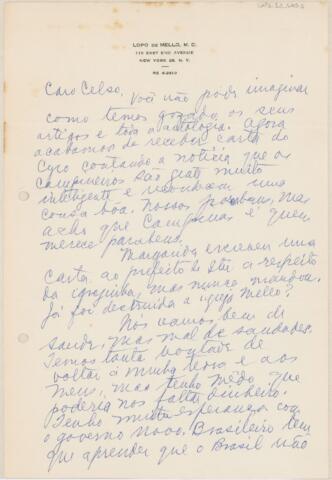 LOPO DE MELLO, M. D.
110 EAST END AVENUE
NEW YORK 28, N. Y.
Caro Celso,
Você não pode imaginar
como temos gozado os seus
artigos e toda a antologia. Agora
acabamos de receber carta do
Cyro contando a notícia que os
campineiros são gente muito
inteligente e reconhecem uma
cousa bôa. Nossos parabens, mas
acho que Campinas é quem
merece parabens.
Margarida escreveu uma
carta ao prefeito a respeito
da igrejinha, mas nunca mandou.
Já foi destruida a
Nós vamos bem de
saude, mas mal de saudades.
Temos tanta vontade de
voltar á minha terra e aos
meus, mas tenho mêdo que
poderia nos faltar dinheiro.
Tenho muita esperança com
o governo novo. Brasileiro tem
que aprender que o Brasil não